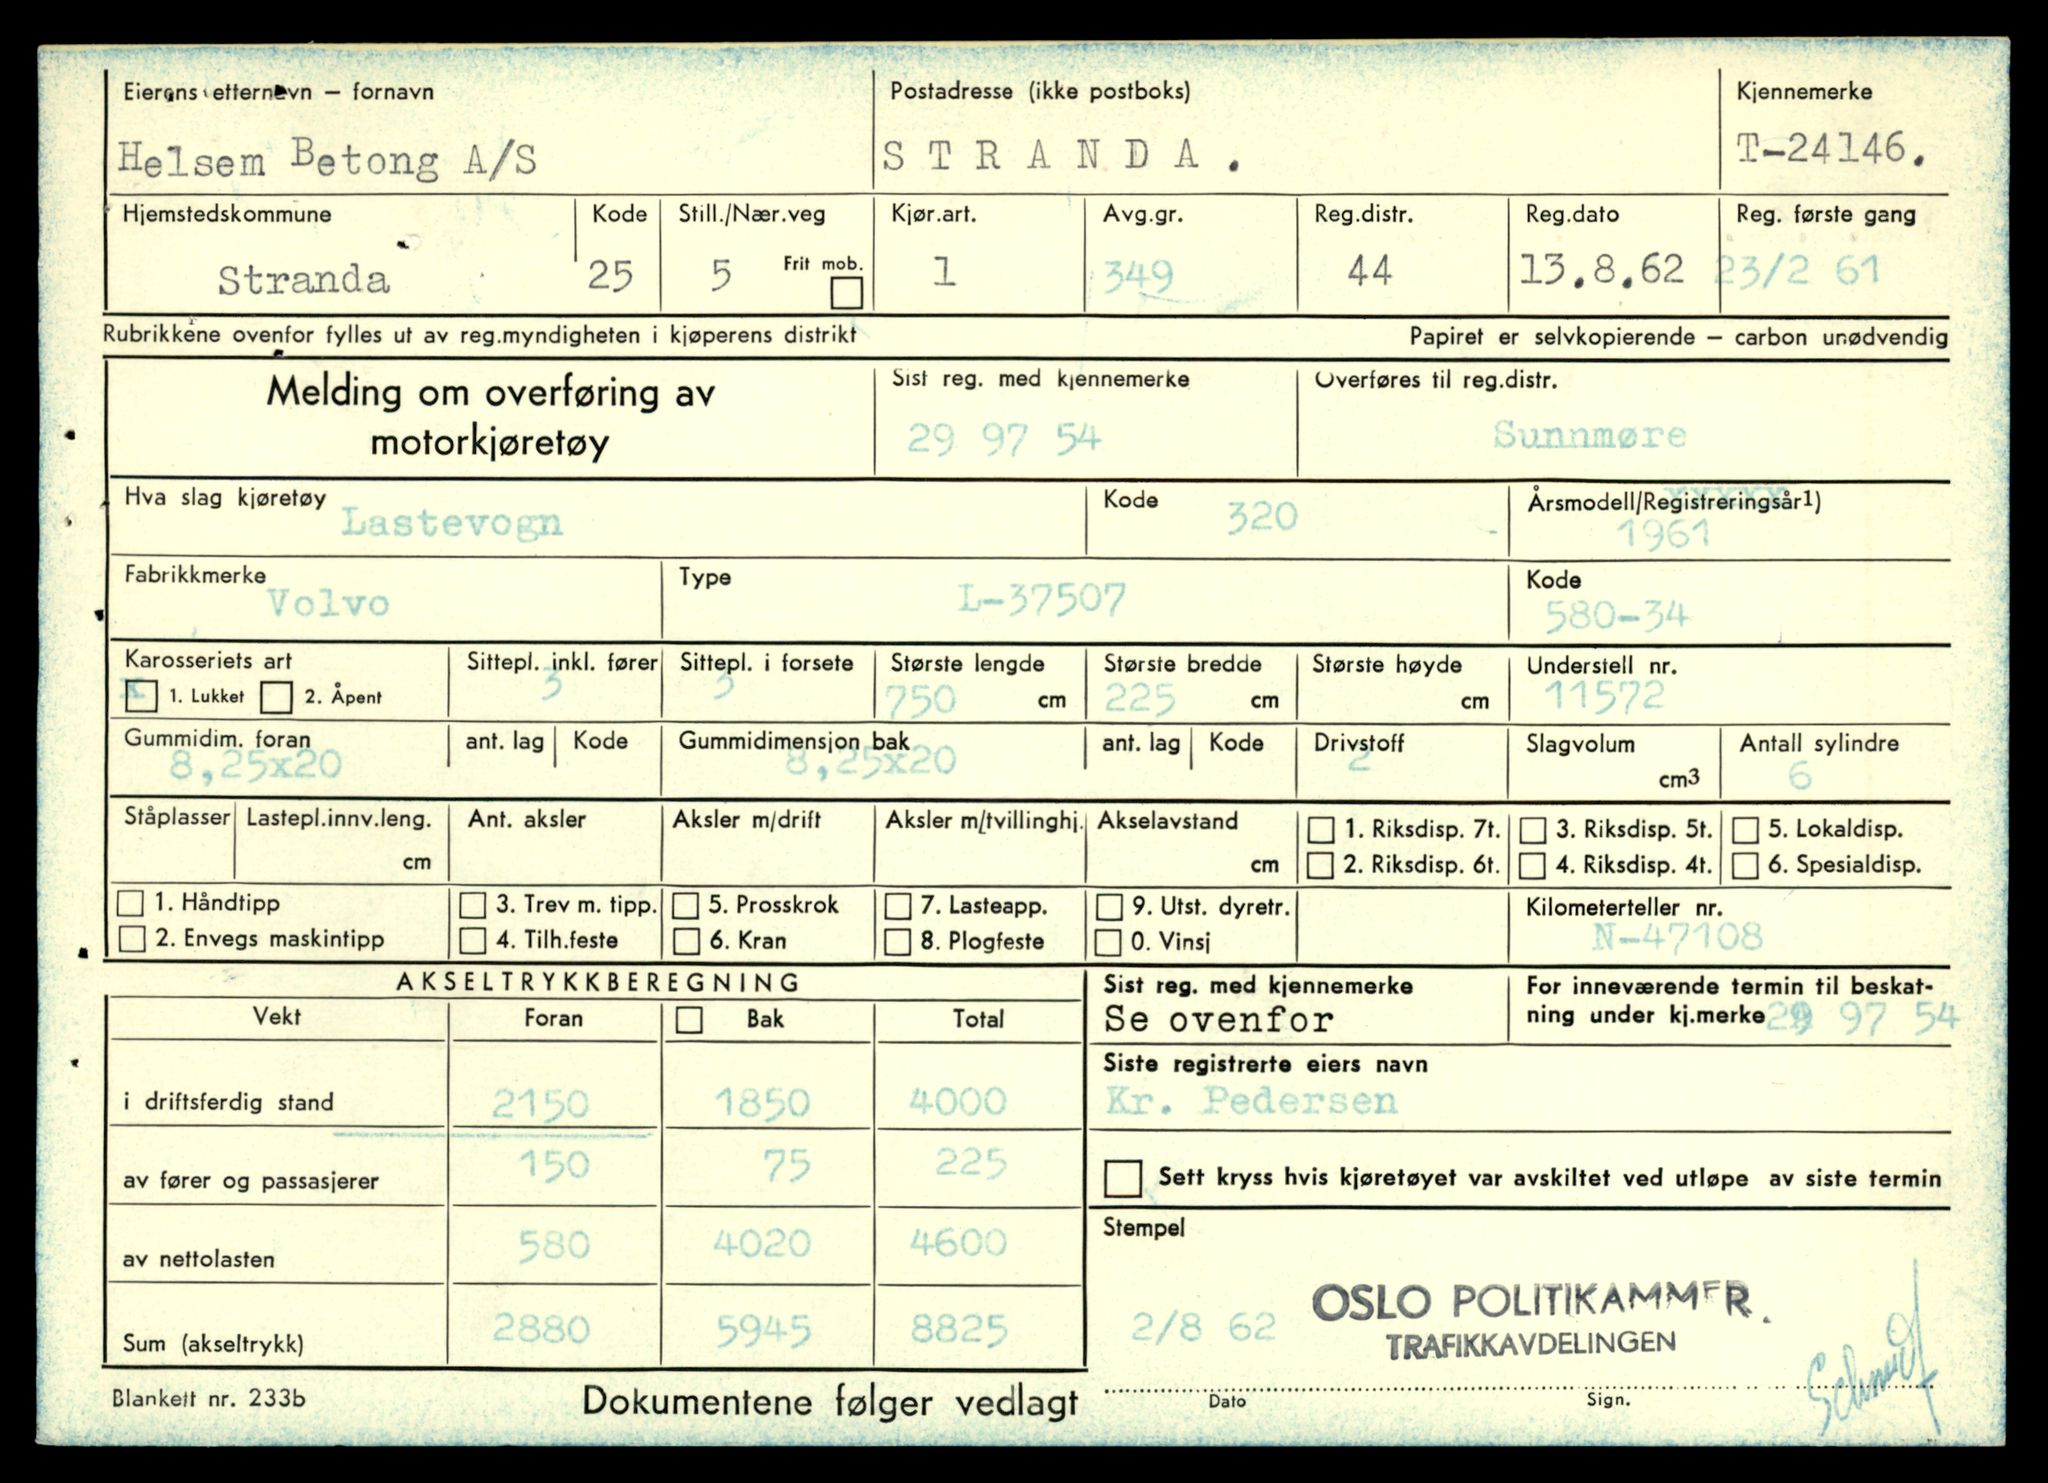 Eierens etternavn – fornavn
Helsem Betong A/S
Postadresse (ikke postboks)
STRANDA.
Kjennemerke
T-24146.
Hjemstedskommune
Stranda
Kode
25
Still./Nær.veg
5
Frit mob.
Kjør.art.
1
Avg.gr.
349
Reg.distr.
44
Reg.dato
13.8.62
Reg. første gang
23/2 61
Rubrikkene ovenfor fylles ut av reg.myndigheten i kjøperens distrikt
Papiret er selvkopierende – carbon unødvendig
Melding om overføring av
motorkjøretøy
Sist reg. med kjennemerke
29 97 54
Overføres til reg.distr.
Sunnmøre
Hva slag kjøretøy
Lastevogn
Kode
320
Årsmodell/Registreringsår1)
1961
Fabrikkmerke
Volvo
Type
L-37507
Kode
580-34
Karosseriets art
x 1. Lukket 2. Åpent
Sittepl. inkl. fører
3
Sittepl. i forsete
3
Største lengde
750 cm
Største bredde
225 cm
Største høyde
cm
Understell nr.
11572
Gummidim. foran
8,25x20
ant. lag
Kode
Gummidimensjon bak
8,25x20
ant. lag
Kode
Drivstoff
2
Slagvolum
cm3
Antall sylindre
6
Ståplasser
Lastepl.innv.leng.
cm
Ant. aksler
Aksler m/drift
Aksler m/tvillinghj.
Akselavstand
cm
1. Riksdisp. 7t.
2. Riksdisp. 6t.
3. Riksdisp. 5t.
4. Riksdisp. 4t.
5. Lokaldisp.
6. Spesialdisp.
1. Håndtipp
2. Envegs maskintipp
3. Trev m. tipp.
4. Tilh.feste
5. Prosskrok
6. Kran
7. Lasteapp.
8. Plogfeste
9. Utst. dyretr.
0. Vinsj
Kilometerteller nr.
N-47108
AKSELTRYKKBEREGNING
Vekt Foran Bak Total
i driftsferdig stand 2150 1850 4000
av fører og passasjerer 150 75 225
av nettolasten 580 4020 4600
Sum (akseltrykk) 2880 5945 8825
Sist reg. med kjennemerke
Se ovenfor
For inneværende termin til beskat-
ning under kj.merke 29 97 54
Siste registrerte eiers navn
Kr. Pedersen
Sett kryss hvis kjøretøyet var avskiltet ved utløpe av siste termin
Stempel
2/8 62
OSLO POLITIKAMMER.
TRAFIKKAVDELINGEN
Dato
Sign.
Blankett nr. 233b
Dokumentene følger vedlagt